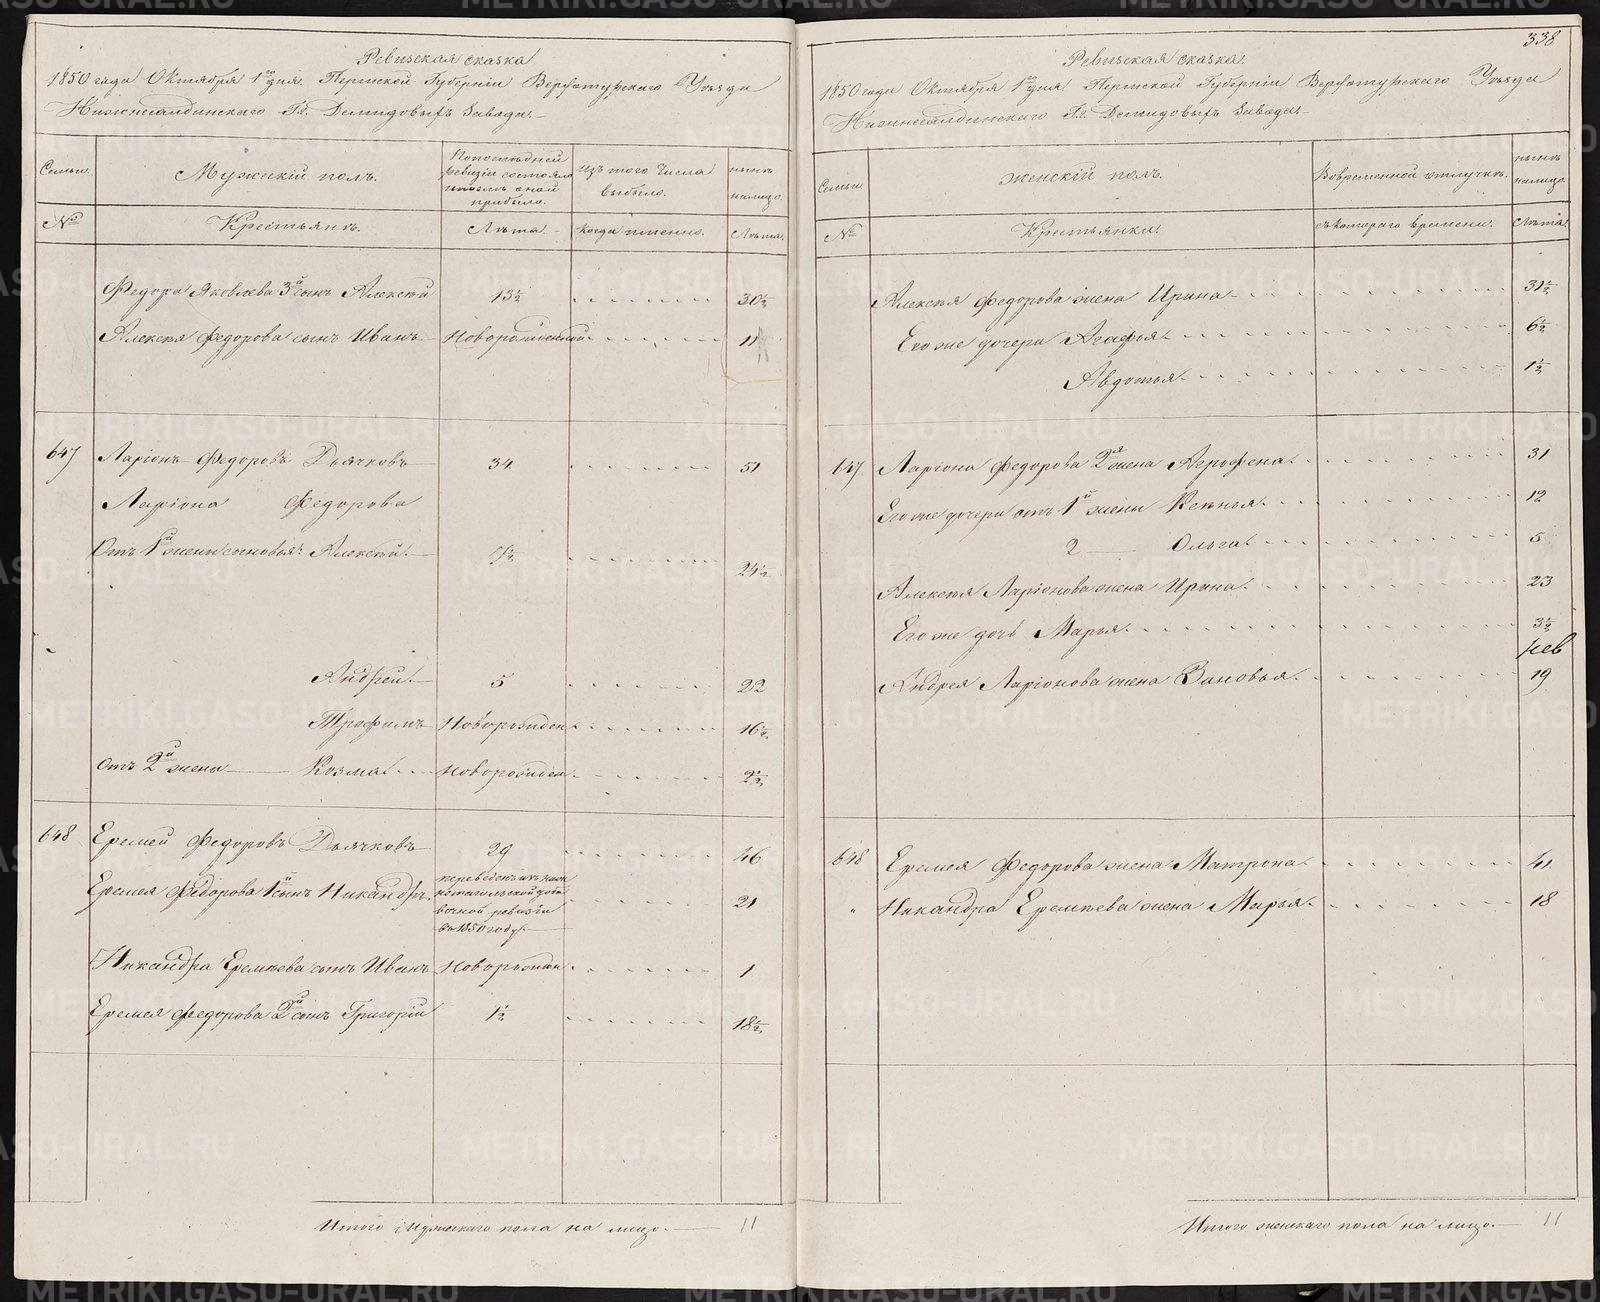 Ревизская сказка
1850 года Октября 1го дня. Пермской Губернiи Верхотурскаго Уъзда
Нижнесалдинскаго Гг. Демидовыхъ Завода.
Семьи.
Мужескiй полъ.
Попослъдней ревизiи состояло и послъ оной прибыло.
изъ того Числа выбыло.
нынъ налицо.
№
Крестьянъ.
Лъта
когда именно.
Лъта.
Федора Яковлева 3й сынъ Алексъй 13½ 30½
Алексъя Федорова сынъ Иванъ Новорожденной 11
647 Ларiонъ Федоровъ Дьячковъ 34 51
Ларiона Федорова
Отъ 1й жены сыновья: Алексъй. 7½ 24½
Андрей. 5 22
Трофимъ Новорожден. 16½
Отъ 2й жены Козма. Новорожден. 2½
648 Еремей Федоровъ Дьячковъ 29 46
Еремея Федорова 1й сынъ Никандръ. переведенъ изъ ниж нетагильской
ревизiи
въ 1850 году. 21
Никандра Еремъева сынъ Иванъ Новорожден. 1
Еремея Федорова 2й сынъ Григорiй 1½ 18½
Итого Мужескаго пола на лицо. 11
338
Ревизская сказка.
1850 года Октября 1го дня Пермской Губернiи Верхотурскаго Уъзда
Нижнесалдинскаго Гг. Демидовыхъ Завода.
Семьи.
Женскiй полъ.
Вовременной отлучкъ.
нынъ налицо.
№
Крестьянки.
съкотораго времени.
Лъта.
Алексъя Федорова жена Ирина 31½
Егоже дочери Агафья. 6½
Авдотья. 1½
647 Ларiона Федорова 2я жена Аграфена. 31
Егоже дочери отъ 1й жены Ксенья. 12
2 Ольга. 5
Алексъя Ларiонова жена Ирина. 23
Егоже дочь Марья. 3½
Андрея Ларiонова жена Зиновья. 19
648 Еремея Федорова жена Матрона. 41
" Никандра Еремъева жена Марья. 18
Итого женскаго пола на лицо. 11
METRIKI.GASO-URAL.RU